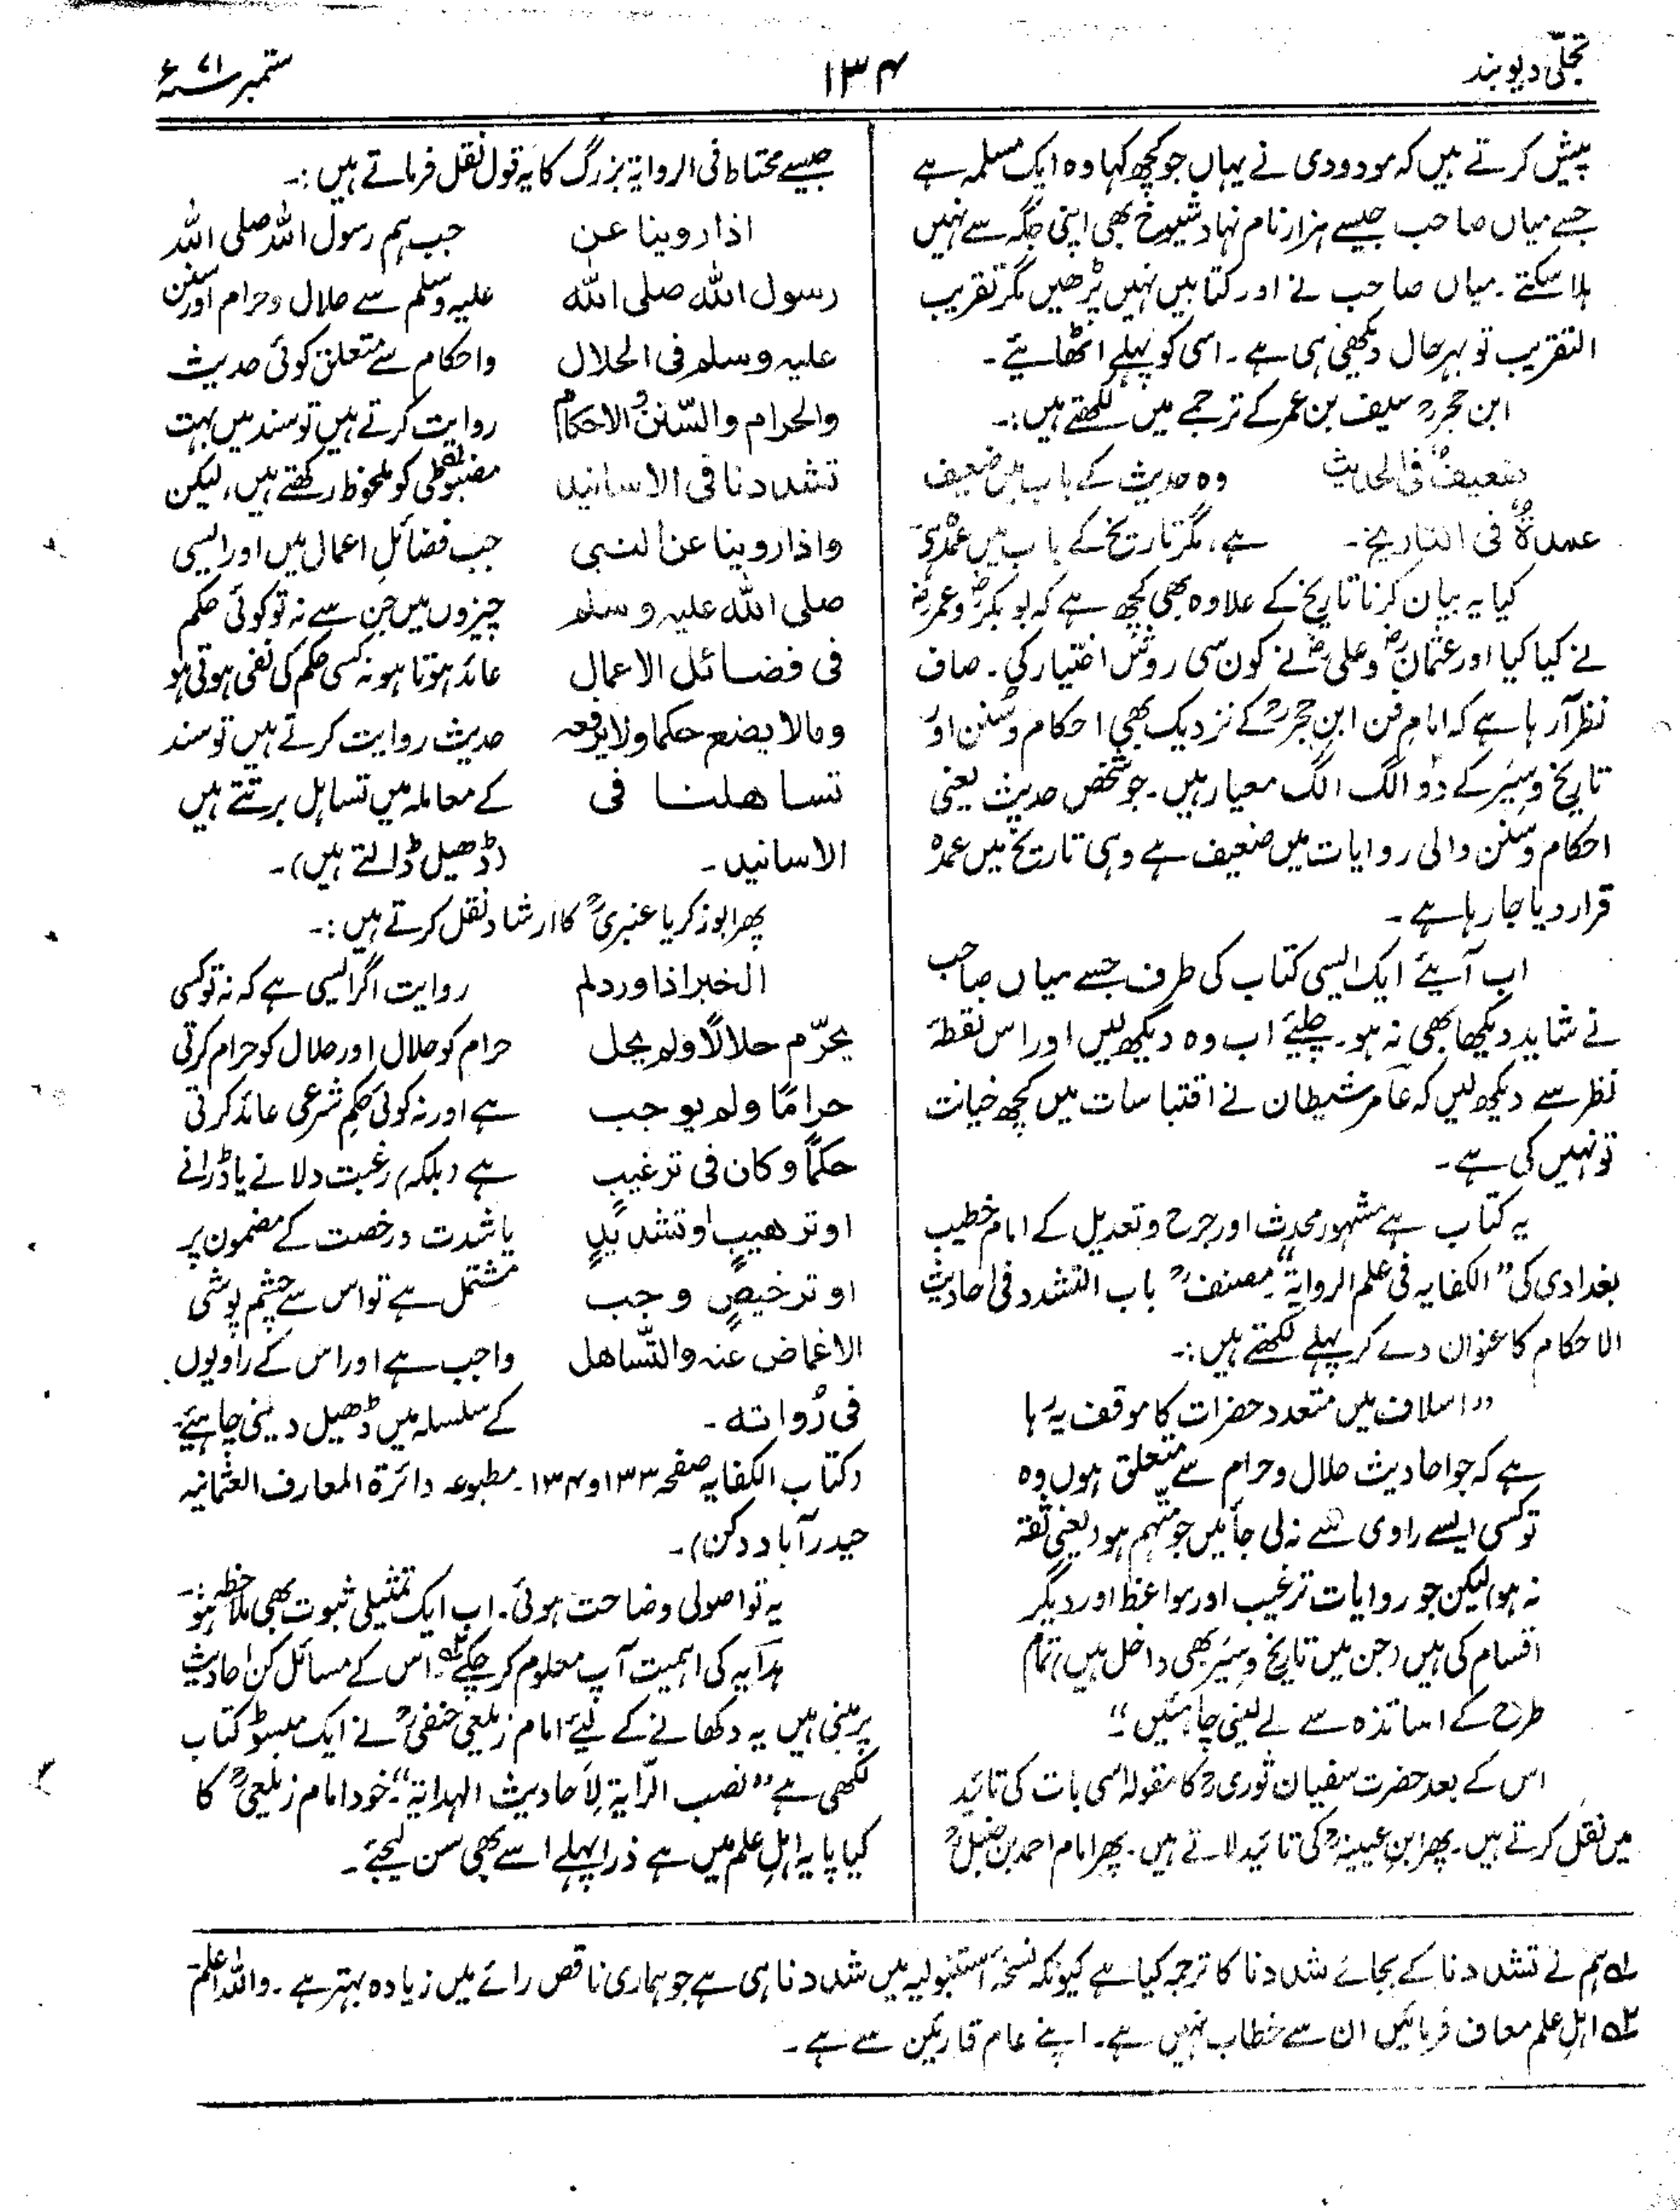 تجلّی دیوبند
۱۳۴
ستمبر ۷۱ء
پیش کرتے ہیں کہ مودودی نے یہاں جو کچھ کہا وہ ایک مسلمہ ہے
جسے میاں صاحب جیسے ہزار نام نہاد شیوخ بھی اپنی جگہ سے نہیں
ہلا سکتے۔ میاں صاحب نے اور کتابیں نہیں پڑھیں مگر تقریب
التقریب تو بہرحال دیکھی ہی ہے۔ اسی کو پہلے اٹھایئے۔
ابن حجرؒ سیف بن عمر کے ترجمے میں لکھتے ہیں:۔
ضعیفٌ فی الحدیث وہ حدیث کے باب میں ضعیف
عمدۃٌ فی التاریخ۔ ہے، مگر تاریخ کے باب میں عمدہ ہے
کیا یہ بیان کرنا تاریخ کے علاوہ بھی کچھ ہے کہ بوبکرؓ و عمرؓ
نے کیا کیا اور عثمانؓ و علیؓ نے کون سی روش اختیار کی۔ صاف
نظر آرہا ہے کہ امام فن ابن حجرؒ کے نزدیک بھی احکام و سنن اور
تاریخ و سِیَر کے دو الگ الگ معیار ہیں۔ جو شخص حدیث یعنی
احکام و سنن والی روایات میں ضعیف ہے وہی تاریخ میں عمدہ
قرار دیا جا رہا ہے۔
اب آیئے ایک ایسی کتاب کی طرف جسے میاں صاحب
نے شاید دیکھا بھی نہ ہو۔ چلیئے اب وہ دیکھ لیں اور اس نقطۂ
نظر سے دیکھ لیں کہ عامر شیطان نے اقتباسات میں کچھ خیانت
تو نہیں کی ہے۔
یہ کتاب ہے مشہور محدث اور جرح و تعدیل کے امام خطیب
بغدادی کی ”الکفایہ فی علم الروایۃ“۔ مصنفؒ باب التشدد فی احادیث
الاحکام کا عنوان دے کر پہلے لکھتے ہیں:۔
”اسلاف میں متعدد حضرات کا موقف یہ رہا
ہے کہ جو احادیث حلال و حرام سے متعلق ہوں وہ
تو کسی ایسے راوی سے نہ لی جائیں جو متّہم ہو (یعنی ثقہ
نہ ہو) لیکن جو روایات ترغیب اور مواعظ اور دیگر
اقسام کی ہیں (جن میں تاریخ و سِیَر بھی داخل ہیں) تمام
طرح کے اساتذہ سے لے لینی چاہئیں“
اس کے بعد حضرت سفیان ثوریؒ کا مقولہ اسی بات کی تائید
میں نقل کرتے ہیں۔ پھر ابن عیینہؒ کی تائید لاتے ہیں۔ پھر امام احمد بن حنبلؒ
جیسے محتاط فی الروایۃ بزرگ کا یہ قول نقل فرماتے ہیں:۔
اذا روینا عن جب ہم رسول اللہ صلی اللہ
رسول اللہ صلی اللہ علیہ وسلم سے حلال و حرام اور سنن
علیہ وسلم فی الحلال و احکام سے متعلق کوئی حدیث
والحرام والسّنن والاحکام روایت کرتے ہیں تو سند میں بہت
تشددنا فی الاسانید مضبوطی کو ملحوظ رکھتے ہیں، لیکن
واذا روینا عن النبی جب فضائلِ اعمال میں اور ایسی
صلی اللہ علیہ وسلم چیزوں میں جن سے نہ تو کوئی حکم
فی فضائل الاعمال عائد ہوتا ہو نہ کسی حکم کی نفی ہوتی ہو
ومالا یضع حکما ولا یرفعہ حدیث روایت کرتے ہیں تو سند
تساھلنا فی کے معاملہ میں تساہل برتتے ہیں
الاسانید۔ (ڈھیل ڈالتے ہیں)۔
پھر ابو زکریا عنبریؒ کا ارشاد نقل کرتے ہیں:۔
الخبر اذا ورد لم روایت اگر ایسی ہے کہ نہ تو کسی
یحرّم حلالًا ولم یحل حرام کو حلال اور حلال کو حرام کرتی
حرامًا ولم یوجب ہے اور نہ کوئی حکم شرعی عائد کرتی
حکمًا وکان فی ترغیبٍ ہے (بلکہ) رغبت دلانے یا ڈرانے
او ترھیبٍ او تشدیدٍ یا شدت و رخصت کے مضمون پر
او ترخیصٍ وجب مشتمل ہے تو اس سے چشم پوشی
الاغماض عنہ والتّساھل واجب ہے اور اس کے راویوں
فی رُواتہ۔ کے سلسلہ میں ڈھیل دینی چاہیئے۔
(کتاب الکفایہ صفحہ ۱۳۳ و ۱۳۴۔ مطبوعہ دائرۃ المعارف العثمانیہ
حیدرآباد دکن)۔
یہ تو اصولی وضاحت ہوئی۔ اب ایک تمثیلی ثبوت بھی ملاحظہ ہو:۔
ہدایہ کی اہمیت آپ معلوم کر چکے۲؎۔ اس کے مسائل کن احادیث
پر مبنی ہیں یہ دکھانے کے لیئے امام زیلعی حنفیؒ نے ایک مبسوط کتاب
لکھی ہے ”نصب الرّایۃ لِاَحادیث الہدایۃ“۔ خود امام زیلعیؒ کا
کیا پایہ اہلِ علم میں ہے ذرا پہلے اسے بھی سن لیجئے۔
۱؎ ہم نے تشددنا کے بجائے شددنا کا ترجمہ کیا ہے کیونکہ نسخۂ استنبولیہ میں شددنا ہی ہے جو ہماری ناقص رائے میں زیادہ بہتر ہے۔ واللہ اعلم
۲؎ اہلِ علم معاف فرمائیں ان سے خطاب نہیں ہے۔ اپنے عام قارئین سے ہے۔